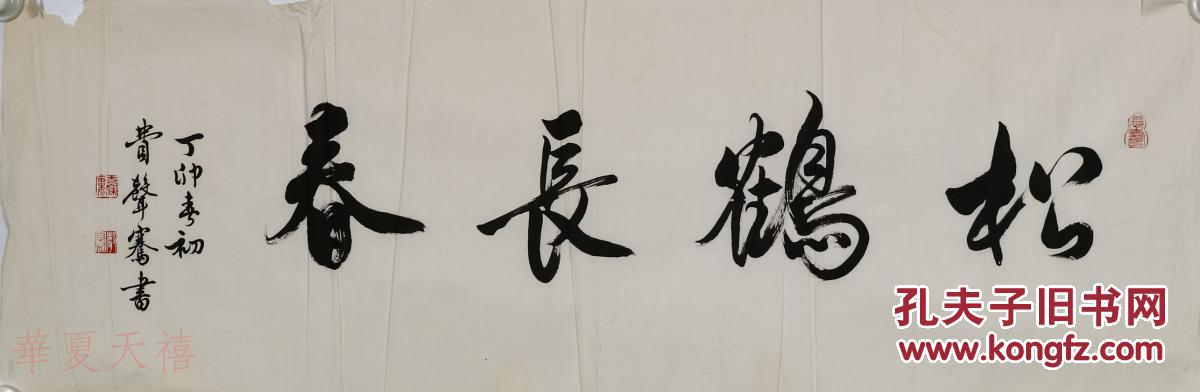 松鶴長春
丁卯春初
費聲騫書
孔夫子旧书网
www.kongfz.com
華夏天禧